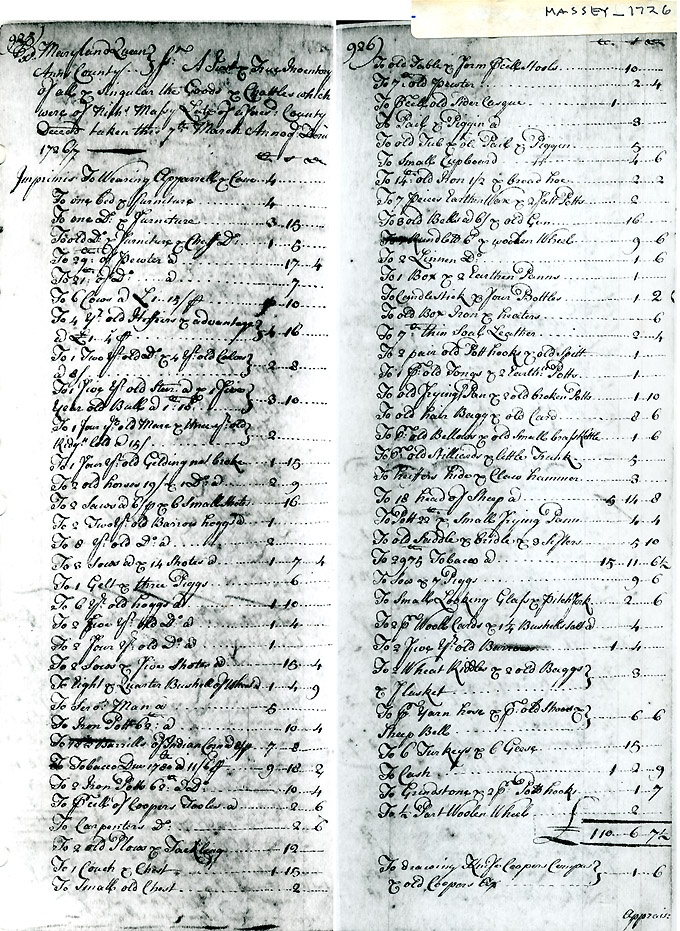 MASSEY_1726
925
Maryland Queen
Anns County
A Just & True Inventory
of all & Singular the Goods & Chattles which
were of Late of County
Deceasd taken the 7th March Annoq Dom
1726/7
Imprimis To Wearing Apparrell & Cane 4
To one bed & furniture 4
To one Do. & furniture 3 15
To old Do. & furniture & Chest Do. 1 5
To 29 of Pewter a 17 4
To 21 of Do. a 7
To 6 Cows a £1 15 10
To 4 Yr. old Heffers & advantage
a £1 4 4 16
To 1 Two Yr. old Do. & 4 Yr. old
a 8/ 2 8
To 1 five Yr. old Steer a & 1 five
year old Bull a 3 10
To 1 four Yr. old Mare & three Yr. old
a 15/ 2
To 1 four Yr. old Gelding not broke 1 15
To 2 old horses 19/ a 2 9
To 2 Sows a & 6 Small 16
To 2 Two Yr. old Barrow hoggs a 1
To 8 Yr. old Do. a 2
To 3 Sows a & 14 Shotes a 1 7 4
To 1 Gelt & three Piggs 6
To 6 Yr. old hoggs a 1 10
To 2 five Yr. old Do. a 1 4
To 2 four Yr. old Do. a 1
To 2 Sows & five Shotes a 15 4
To Eight & Quarter Bushell of Wheat a 1 4 9
To Man a 5
To Iron Pott 62 a 10 4
To Barrills of Indian Corn 7 8
To Tobacco Due 1780 a 11/6 9 18 2
To 2 Iron Potts 62 a Do. 10 4
To of Coopers Tooles a 2 6
To Carpenters Do. 2 6
To 2 old Plows & Tackling 12
To 1 Couch & Chest 1 15
To Small old Chest 2
926
To old Table & form Stools 10
To 7 old Pewter 2 4
To old Sider Casque 1
To Pail & Piggin a 3
To old Tub & old Pail & Piggin 5
To Small Cupboard 4 6
To 14 old Iron 1/2 & broad hoe 2 2
To 7 Peices Earthen Ware & 2 Potts 2
To 3 old Bells a 6/ & old Gun 16
To Rundletts 6/ & woolen Wheel 9 6
To 2 Linnen Do. 1 6
To 1 Box & 2 Earthen Panns 1
To Candlestick & four Bottles 1 2
To old Box Iron & heaters 6
To 7 thin Soal Leather 2 4
To 2 pair old Pott hooks & old Spitt 1
To 1 Pr. old Tongs & 2 Earthn. Potts 1
To old frying Pan & 2 old broken Potts 1 10
To old hair Bagg & old Card 8 6
To Pr. old Bellows & old Small brass Kittle 1 6
To Pr. old Stilliards & little Trunk 5
To Heifers hide & Claw hammer 3
To 18 head of Sheep a 5 14 8
To Pott 22 & Small frying Pann 4 4
To old Saddle & Bridle & 2 Sifters 5 10
To 2975 Tobacco a 15 11 6½
To Sow & 7 Piggs 9 6
To Small Looking Glass & Pitchfork 2 6
To 2 pr Wooll Cards & 1½ Bushells Salt a 4
To 2 five Yr. old 1 4
To 2 Wheat Riddles & 2 old Baggs
& flasket 3
To Pr. Yarn hose & Pr. old Shoes &
Sheep Bell 6 6
To 6 Turkeys & 6 Geese 15
To Cash 1 2 9
To Grindstone & 2 Pr. Pott hooks 1 7
To ½ Part Woolen Wheel 2
£ 110 6 7½
To drawing Knife Coopers Compass
& old Coopers 1 6
Apprais: